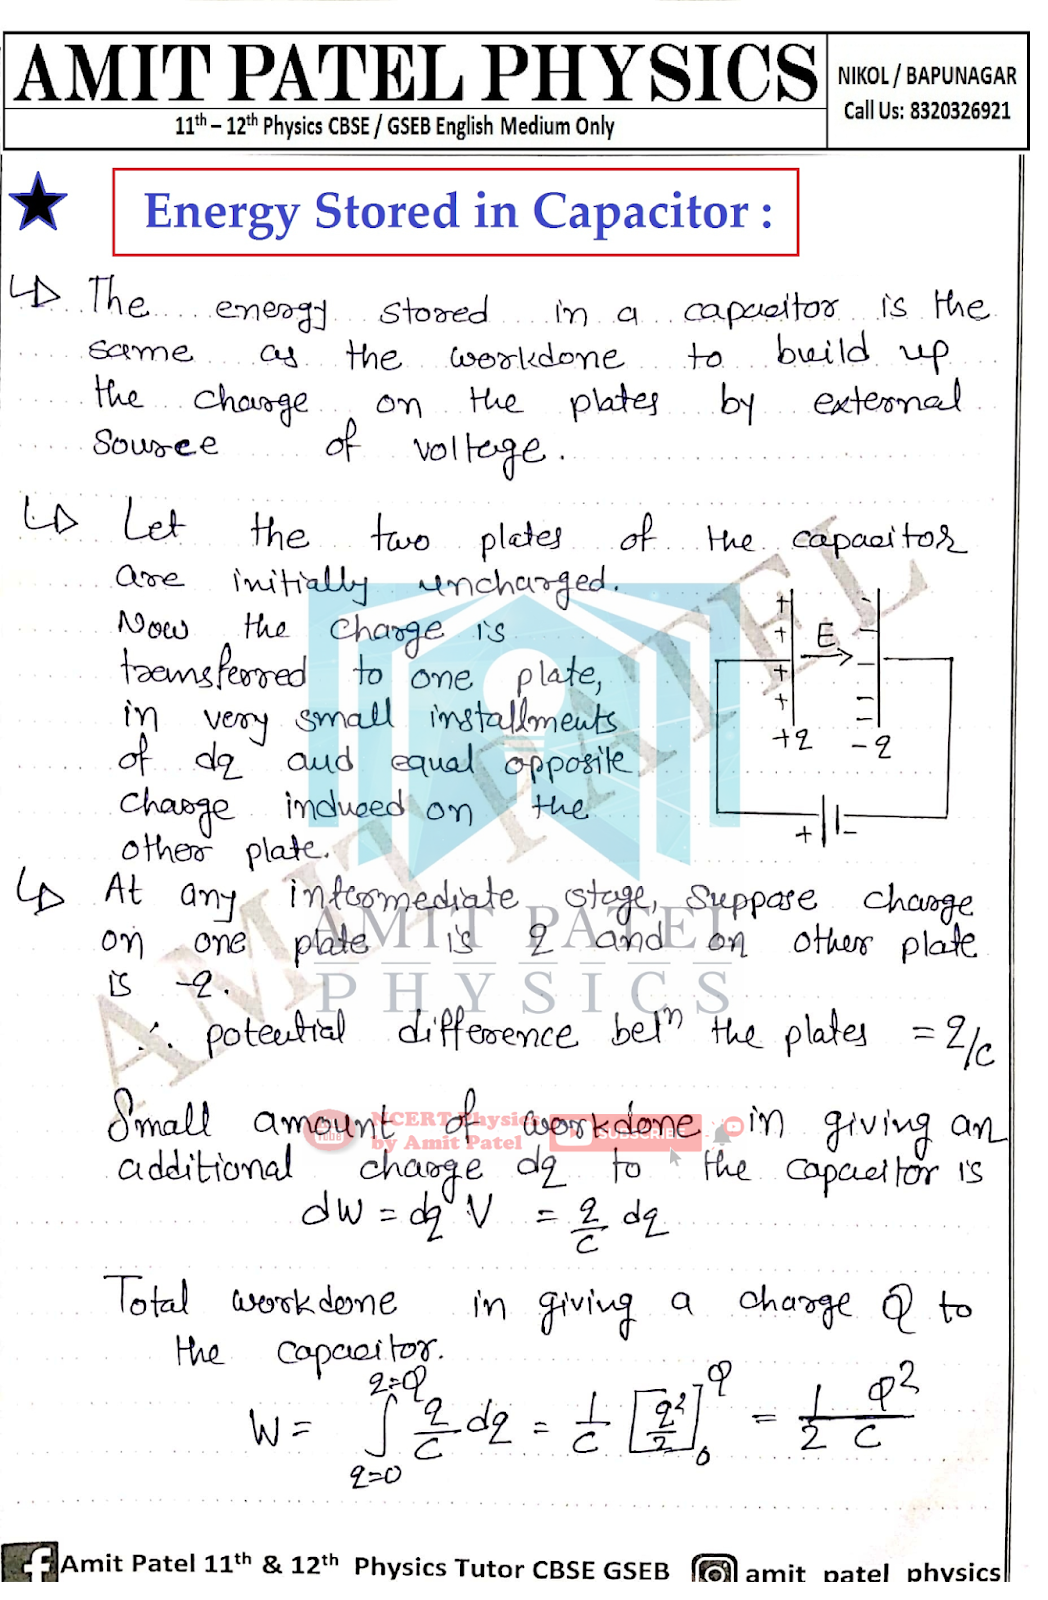 AMIT PATEL PHYSICS
11th – 12th Physics CBSE / GSEB English Medium Only
NIKOL / BAPUNAGAR
Call Us: 8320326921
Energy Stored in Capacitor :
The energy stored in a capacitor is the
same as the workdone to build up
the charge on the plates by external
source of voltage.
Let the two plates of the capacitor
are initially uncharged.
Now the charge is
transferred to one plate,
in very small installments
of dq and equal opposite
charge induced on the
other plate.
+ + + +
E
- - - - -
+q -q
+ -
At any intermediate stage, suppose charge
on one plate is q and on other plate
is -q.
∴ potential difference betn the plates = q/c
Small amount of workdone in giving an
additional charge dq to the capacitor is
dW = dq V = q/c dq
Total workdone in giving a charge Q to
the capacitor.
W = ∫ q=0 q=Q q/c dq = 1/c [q²/2] 0 Q = 1/2 Q²/C
AMIT PATEL
AMIT PATEL
PHYSICS
You Tube
NCERT Physics
by Amit Patel
SUBSCRIBE
Amit Patel 11th & 12th Physics Tutor CBSE GSEB
amit_patel_physics